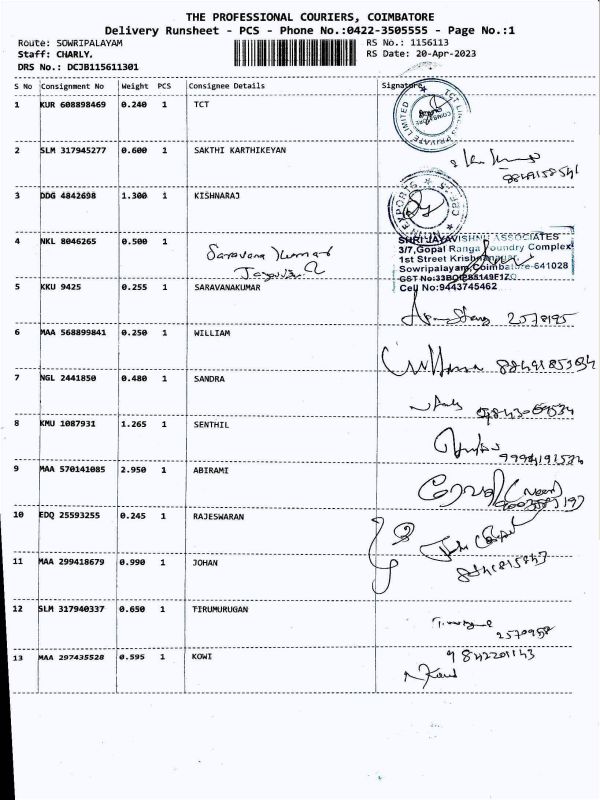 THE PROFESSIONAL COURIERS, COIMBATORE
Delivery Runsheet - PCS - Phone No.:0422-3505555 - Page No.:1
Route: SOWRIPALAYAM RS No.: 1156113
Staff: CHARLY. RS Date: 20-Apr-2023
DRS No.: DCJB115611301
S No Consignment No Weight PCS Consignee Details Signature
1 KUR 608898469 0.240 1 TCT
2 SLM 317945277 0.600 1 SAKTHI KARTHIKEYAN
3 DDG 4842698 1.300 1 KISHNARAJ
4 NKL 8046265 0.500 1 Saravana Kumar
SHRI JAYAVISHNU ASSOCIATES
3/7,Gopal Ranga Foundry Complex
1st Street Krishnanagar
Sowripalayam,Coimbatore-641028
Cell No:9443745462
5 KKU 9425 0.255 1 SARAVANAKUMAR
2578195
6 MAA 568899841 0.250 1 WILLIAM
7 NGL 2441850 0.480 1 SANDRA
8 KMU 1087931 1.265 1 SENTHIL
9 MAA 570141085 2.950 1 ABIRAMI
10 EDQ 25593255 0.245 1 RAJESWARAN
11 MAA 299418679 0.990 1 JOHAN
12 SLM 317940337 0.650 1 TIRUMURUGAN
13 MAA 297435528 0.595 1 KOWI
9842201143